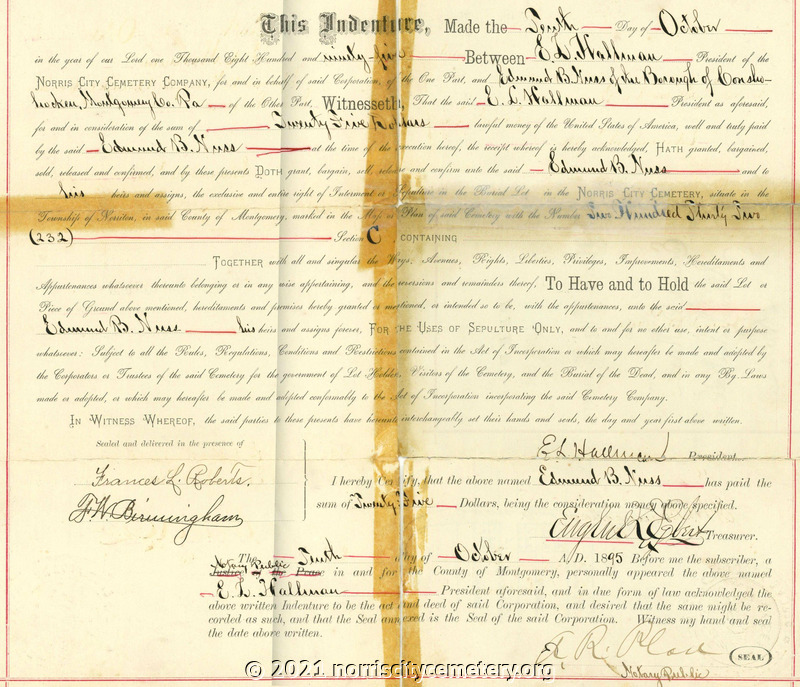 This Indenture, Made the Tenth Day of October
in the year of our Lord, one Thousand Eight Hundred and ninety-five Between E. L. Hallman President of the
NORRIS CITY CEMETERY COMPANY, for and in behalf of said Corporation, of the One Part, and Edmund B. Nuss of the Borough of Consho-
hocken, Montgomery Co. Pa of the Other Part, Witnesseth, That the said E. L. Hallman President as aforesaid,
for and in consideration of the sum of Twenty Five Dollars lawful money of the United States of America, well and truly paid
by the said Edmund B. Nuss at the time of the execution hereof, the receipt whereof is hereby acknowledged, HATH granted, bargained,
sold, released and confirmed, and by these presents DOTH grant, bargain, sell, release and confirm unto the said Edmund B. Nuss and to
his heirs and assigns, the exclusive and entire right of Interment or Sepulture in the Burial Lot in the NORRIS CITY CEMETERY, situate in the
Township of Norriton, in said County of Montgomery, marked in the Map or Plan of said Cemetery with the Number Two Hundred Thirty Two
(232) Section C, CONTAINING
TOGETHER with all and singular the Ways, Avenues, Rights, Liberties, Privileges, Improvements, Hereditaments and
Appurtenances whatsoever thereunto belonging or in any wise appertaining, and the reversions and remainders thereof, To Have and to Hold the said Lot or
Piece of Ground above mentioned, hereditaments and premises hereby granted or mentioned, or intended so to be, with the appurtenances, unto the said
Edmund B. Nuss his heirs and assigns forever, FOR THE USES OF SEPULTURE ONLY, and to and for no other use, intent or purpose
whatsoever: Subject to all the Rules, Regulations, Conditions and Restrictions contained in the Act of Incorporation or which may hereafter be made and adopted by
the Corporators or Trustees of the said Cemetery for the government of Lot Holders, Visitors of the Cemetery, and the Burial of the Dead, and in any By-Laws
made or adopted, or which may hereafter be made and adopted conformably to the Act of Incorporation incorporating the said Cemetery Company.
IN WITNESS WHEREOF, the said parties to these presents have hereunto interchangeably set their hands and seals, the day and year first above written.
Sealed and delivered in the presence of
E L Hallman President.
Frances L. Roberts.
F. W. Birmingham
I hereby Certify, that the above named Edmund B. Nuss has paid the
sum of Twenty Five Dollars, being the consideration money above specified.
Treasurer.
The Tenth day of October A.D. 1895 Before me the subscriber, a
Notary Public
Justice of the Peace in and for the County of Montgomery, personally appeared the above named
E. L. Hallman President aforesaid, and in due form of law acknowledged the
above written Indenture to be the act and deed of said Corporation, and desired that the same might be re-
corded as such, and that the Seal annexed is the Seal of said Corporation. Witness my hand and seal
the date above written.
SEAL
Notary Public
© 2021 norriscitycemetery.org